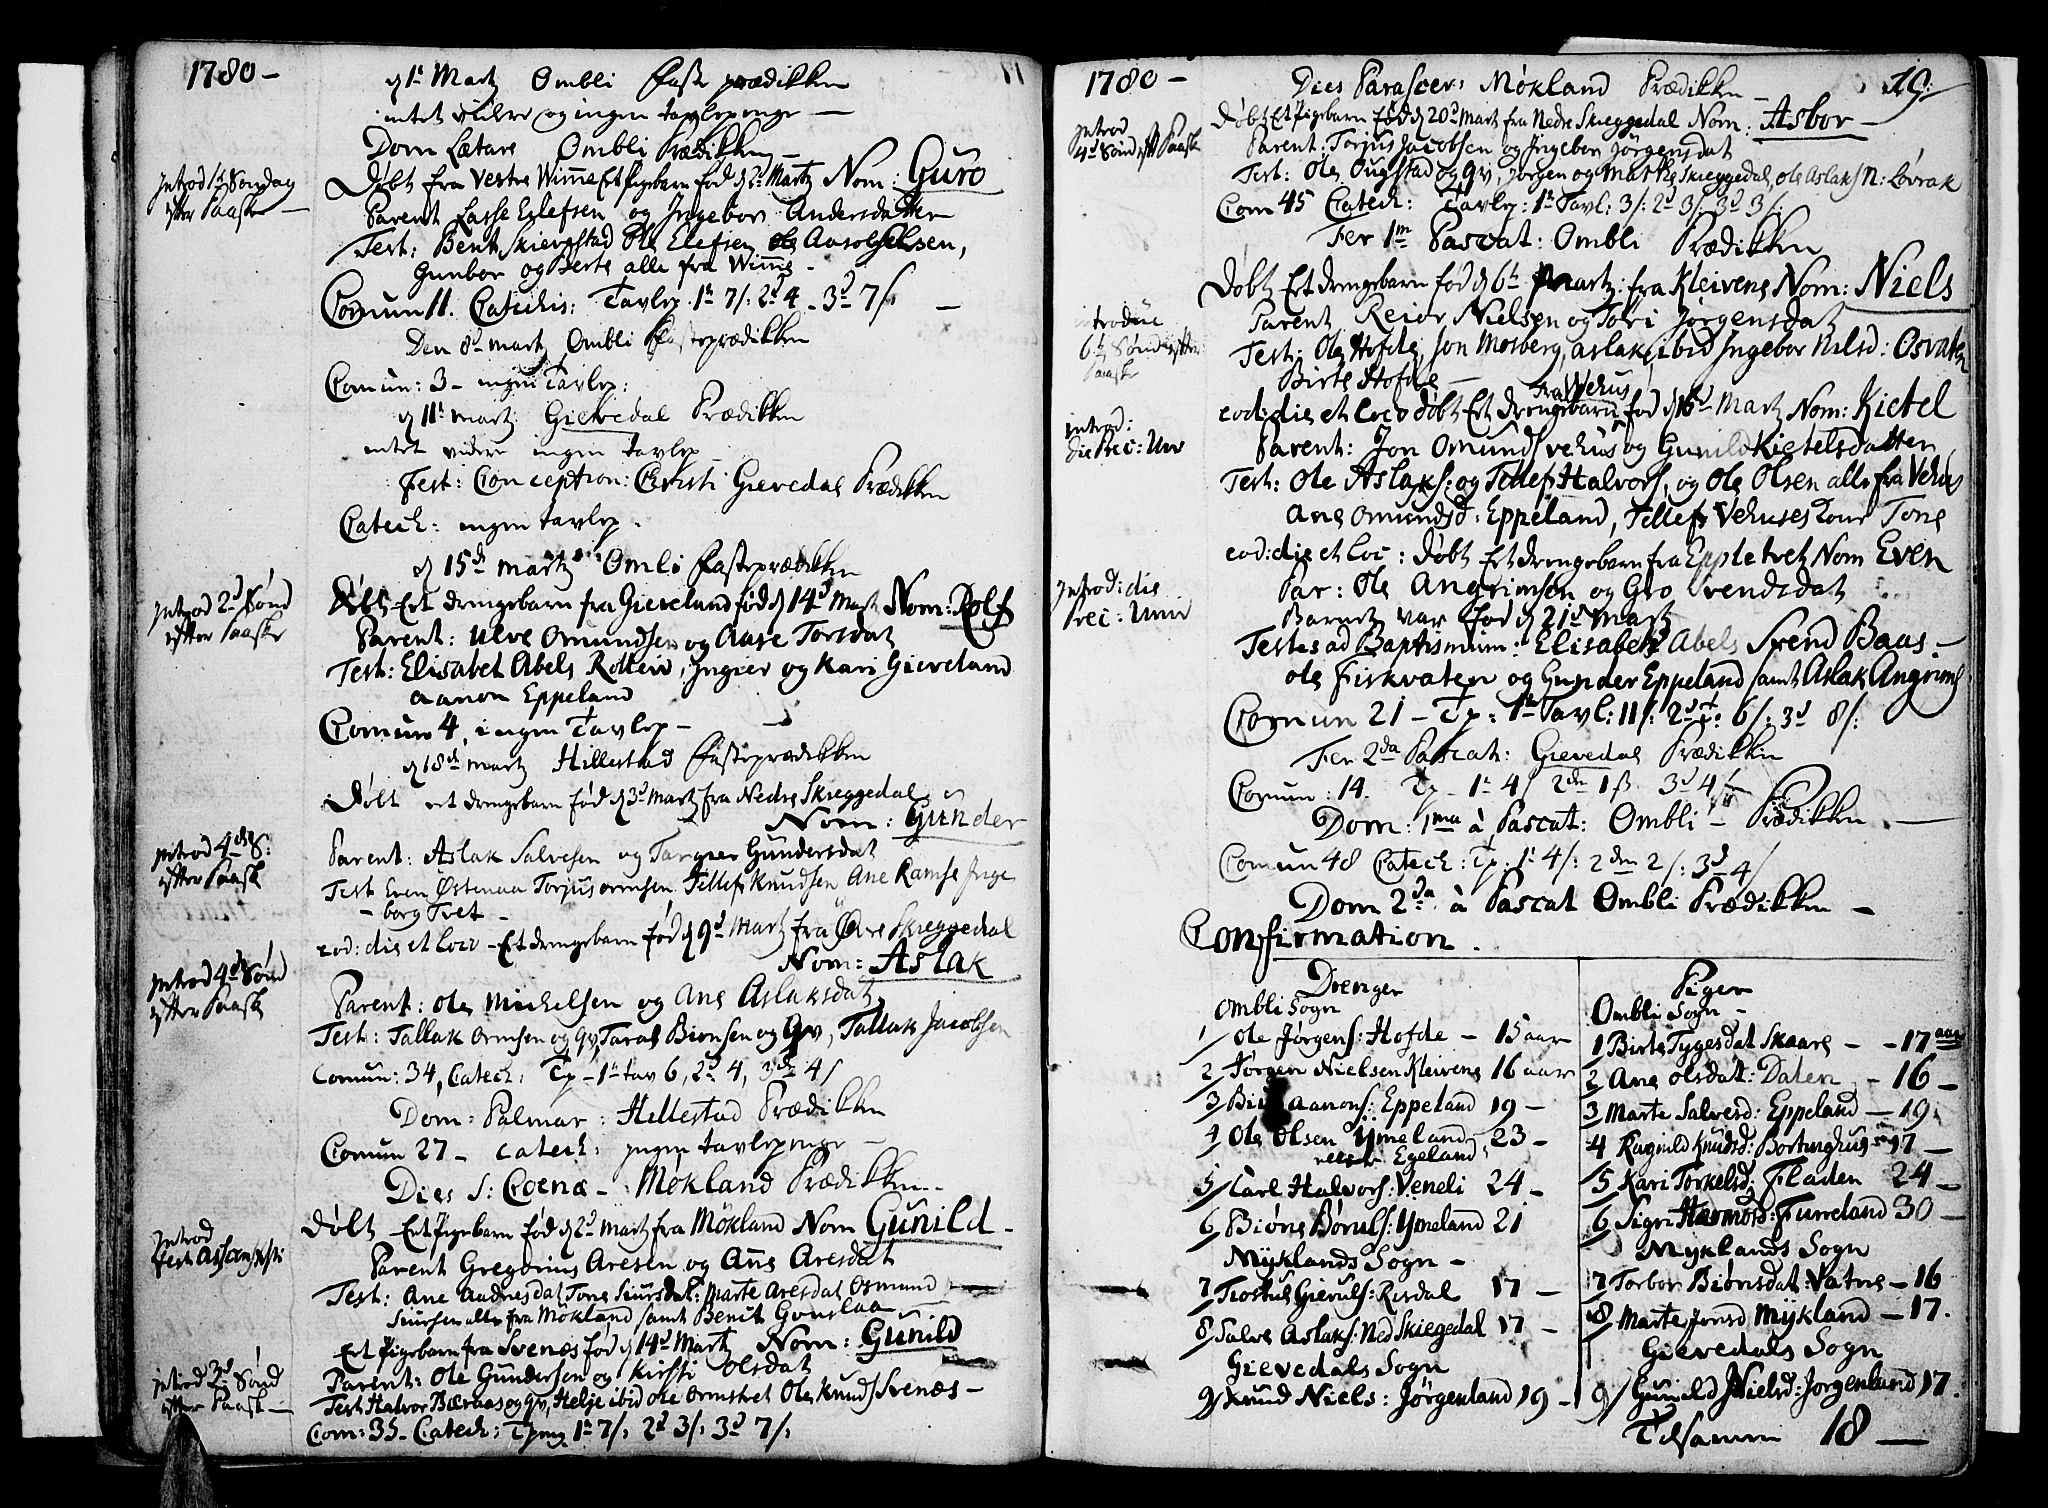 1780 –
d 1t Martz Ombli Faste prædikken
intet videre og ingen tavlepenge –
Dom Lætare Ombli Prædikken –
Introd 1t Søndag
efter Paaske –
Døbt fra Vestre Wimme Et pigebarn fød d 2d Martz Nom: Guro
Parent Lasse Ellefsen og Ingebor Andersdatter
Test: Bent Skiergstad Ole Elefsen
Gunbor og Berte alle fra Wimme –
Comun 11. Catechis: Tavlep: 1t 7/: 2d 4 – 3d 7/ –
Den 8d martz Ombli Fasteprædikken
Comun: 3 – ingen Tavlep:
d 11t martz Gievedal Prædikken
intet videre ingen tavlep
Fest: Conception: Christi Gievedal Prædikken
Catech: ingen tavlep.
d 15de martz Omli Fasteprædikken
Introd 2d Sønd
efter Paaske
Døbt Et drengebarn fra Gieveland fød d 14d Martz Nom: Rolf
Parent: Ulve Omundsen og Aase Torsdat
Test: Elisabet Abels Rolleiv, Ingier og Kari Gieveland
Aanon Eppeland
Comun 4, ingen Tavlep –
d 18de martz Hillestad Fasteprædikken
Døbt et drengebarn fød d 3d Martz fra Nedre Skreggedal
Nom: Gunder
Introd 4de S:
efter Paask
Parent: Aslak Salvesen og Targier Gundersdat
Test Even Østenaa Torjus ormsen Tellef Knudsen Ane Ramse Inge
– borg Tvet –
eod: die et loco – Et drengebarn fød d 9d Martz fra Øvre Skreggedal
Nom: Aslak
Introd 4de Sønd
efter Paask
Parent: Ole Michelsen og Ane Aslaksdat
Test: Tallak Ormsen og qv, Taral Biønsen og Qv, Tallak Jacobsen
Comun: 34, Catech: Tp – 1t tav 6, 2d 4, 3de 4/
Dom: Palmar: Hillestad Prædikken
Comun 27 – catech: ingen tavlepenge –
Dies S: Coenæ – Mökland Prædikken –
Introd
fest Asc
Døbt – Et Pigebarn fød d 2d Mart fra Mökland Nom Gunild –
Parent Gregorius Aresen og Ane Aresdat
Test: Ane Aadnesdat Tone Siursdat: Marte Aresdat Osmund
Siursen alle fra Mökland samt Benit Gonslaa
Et Pigebarn fra Svenæs fød d 14d Martz Nom: Gunild
Introd 2d Sønd
efter Paask –
Parent: Ole Gundersen og Kirsti Olsdat
Test Halvor Bæraas og Qv, Helje ibid Ole Ormstvet Ole Knuds Svenæs –
Com: 35 – Catech: Tpeng 1t 7/: 2d 3/: 3d 7/:
1780 –
19:
Dies Parascev: Mökland Prædikken –
Introd
4d Sønd eft Paask
Døbt Et Pigebarn fød d 20d Mart fra Nedre Skieggedal Nom: Asbor –
Parent: Torjus Jacobsen og Ingebor Jörgensdat
Test: Ole Ougstad og qv, Jörgen og Marthe Skieggedal, Ole Aslaks N: Løvrak
Com 45 Catech: Tavlep: 1t Tavl: 3/: 2d 3/: 3d 3/:
Fer 1m Pascat: Ombli Prædikken
Døbt Et drengebarn fød d 6t Martz: fra Kleivene Nom: Niels
introduc
6t Sønd efter
Paaske
Parent Reier Nielsen og Tori Jørgensdat
Test: Ole Hofde, Jon Mosberg, Aslak ibid Ingebor Nilsd: Osvaten
Birte Hofde –
fra Vehus
introd:
die Prec: Univ
eod: die et loco døbt Et drengebarn fød d 16d Martz Nom: Kietel
Parent: Jon Omunds Vehus og Gunild Kietelsdatter
Test: Ole Aslaks: og Tellef Halvors, og Ole Olsen alle fra Vehus
Ane Omundsd: Eppeland, Tellef Vehuses Kone Tone
Introd: die
Prec: Univ
eod: die et loc: Døbt Et drengebarn fra Eppletvet Nom Even
Par: Ole Angrimsen og Gro Svendsdat
Barnet var fød d 21d Martz
Testes ad Baptismum: Elisabeth Abels Svend Baas –
Ole Fiskvaten og Gunder Eppeland samt Aslak Angrims
Comun 21 – Tp: 1te Tavl: 11/: 2de 6/: 3d 8/:
Fer 2da Pascat: Gievedal Prædikken
Comun: 14. Tp – 1t 4/ 2den 1ß 3d 4/ –
Dom: 1ma à Pascat: Ombli – Prædikken –
Comun 48 Catech: Tp: 1t 4/: 2den 2/: 3d 4/
Dom 2da à Pascat Ombli Prædikken –
Confirmation.
Drenger
Ombli Sogn
1/ Ole Jørgens: Hofde – 15 aar
2/ Jörgen Nielsen Kleivene 16 aar
3/ Aanons: Eppeland 19 –
4 Ole Olsen Ymeland 23 –
Egeland
5/ Carl Halvors: Veneli 24 –
6/ Biøne Børuls: Ymeland 21
Myklands Sogn –
7/ Tiostul Gieruls: Risdal 17 –
8/ Salve Aslaks: Ned Skiegedal 17 –
Gievedals Sogn
9/ Knud Niels: Jörgenland 19 –
Piger
Ombli Sogn –
1 Birte Tygesdat Skaare – – 17 aar
2/ Ane Olsdat: Dalen – 16 –
3 Marte Salvesd: Eppeland – 19.
4 Ragnild Knudsd: Bortinghus – 17 –
5/ Kari Torkelsd: Fladen 24 –
6/ Sigri Hermodsd: Furreland 30 –
Myklands Sogn
7/ Torbor Biønsdat: Vatne – 16
8/ Marte Jonsd Mykland – 17.
Gievedals Sogn
9/ Gunild Nielsd: Jorgenland 17.
Tilsamm 18 –